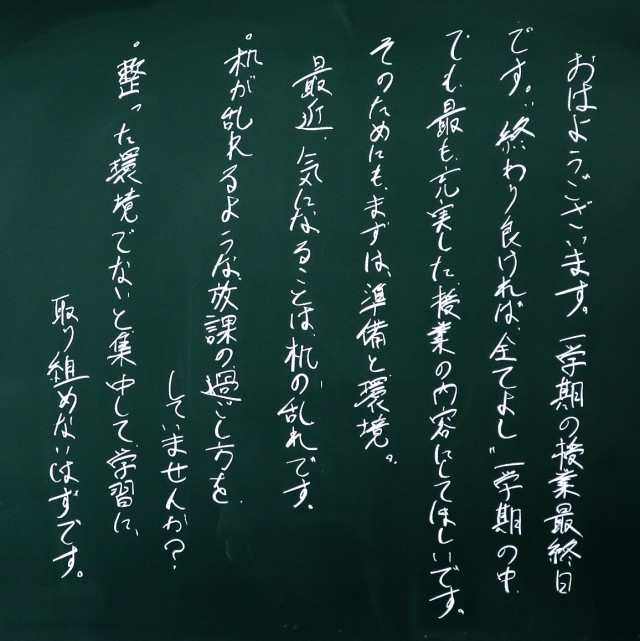 おはようございます。一学期の授業最終日
です。"終わり良ければ、全てよし"一学期の中
でも最も充実した授業の内容にしてほしいです。
そのためにも、まずは、準備と環境。
最近、気になることは、机の乱れです。
・机が乱れるような放課の過ごし方を
していませんか?
・整った環境でないと集中して学習に、
取り組めないはずです。